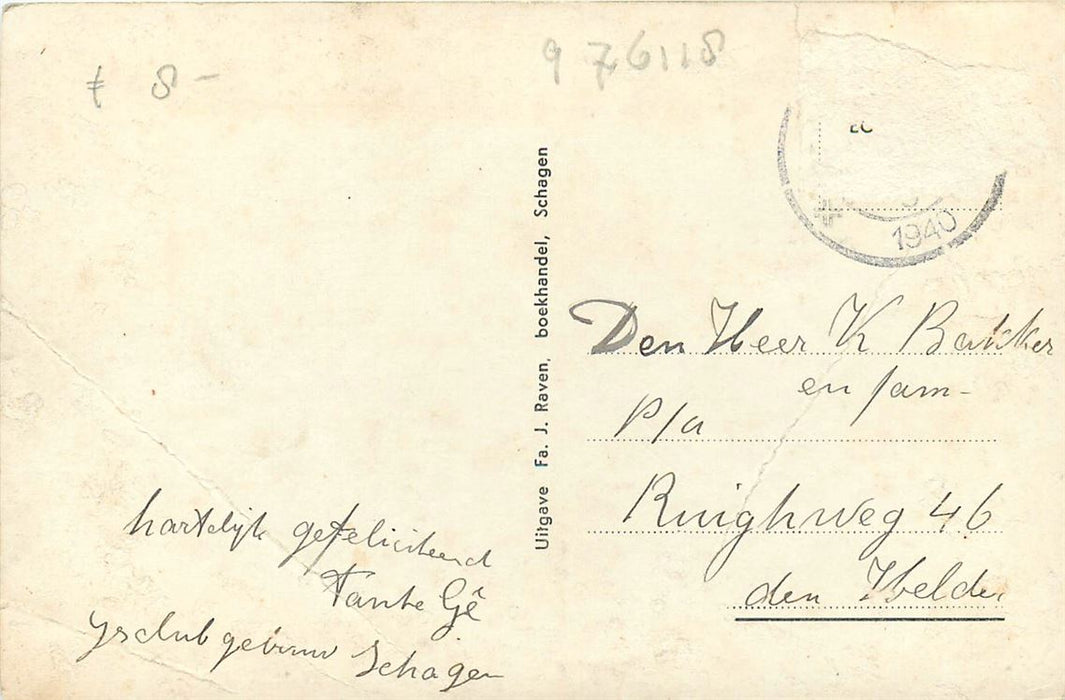 ƒ 8-
976118
1940
Uitgave Fa. J. Raven, boekhandel, Schagen
Den Heer K Bakker
en fam-
P/a
Ruighweg 46
den Helder
hartelijk gefeliciteerd
Tante Gê
Ysclub gebouw Schagen